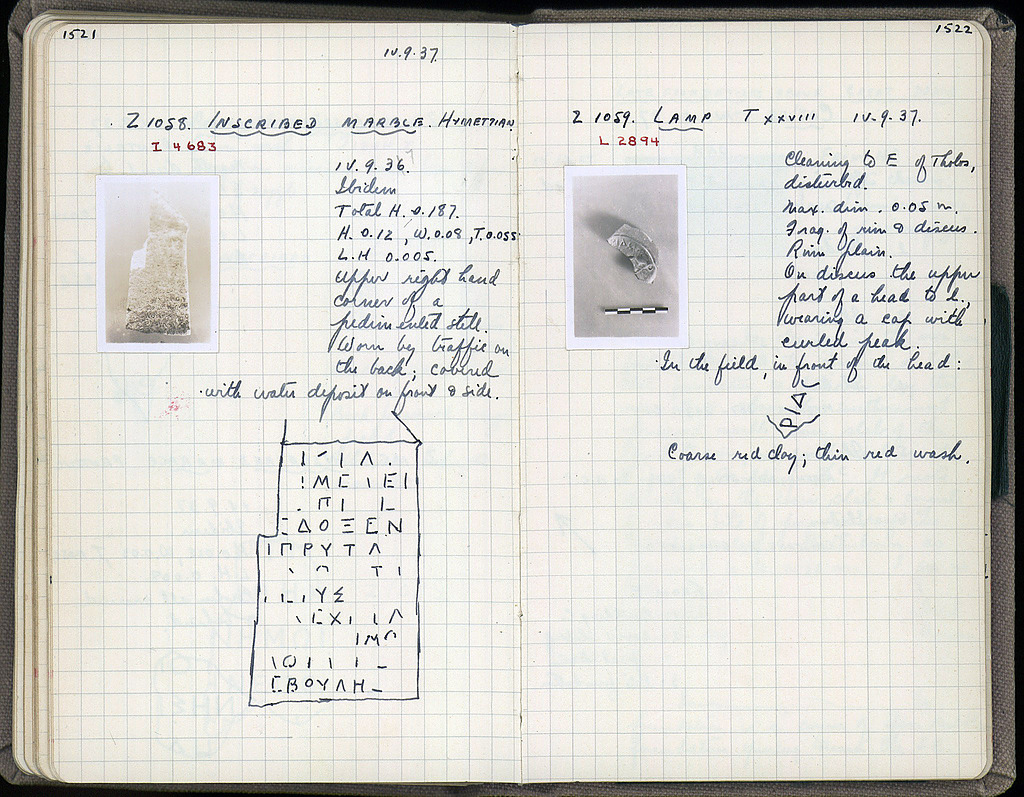 1521
IV.9.37.
Z 1058. INSCRIBED MARBLE. HYMETTIAN
I 4683
IV.9.36.
Ibidem
Total H. 0.187.
H. 0.12, W. 0.08, T. 0.055
L.H 0.005.
Upper right hand
corner of a
pedimented stele.
Worn by traffic on
the back; covered
with water deposit on front & side.
ΜΕ ΙΕΙ
ΠΙ
ΕΔΟΞΕΝ
ΙΠΡΥΤΑ
ΤΙ
ΥΣ
ΕΧΙ
ΙΜΟ
ΕΒΟΥΛΗ
1522
Z 1059. LAMP T XXVIII IV.9.37.
L 2894
Cleaning to E of Tholos,
disturbed.
Max. dim. 0.05 m.
Frag. of rim & discus.
Rim plain.
On discus the upper
part of a head to l.,
wearing a cap with
curled peak.
In the field, in front of the head:
ΡΙΔ
Coarse red clay; thin red wash.